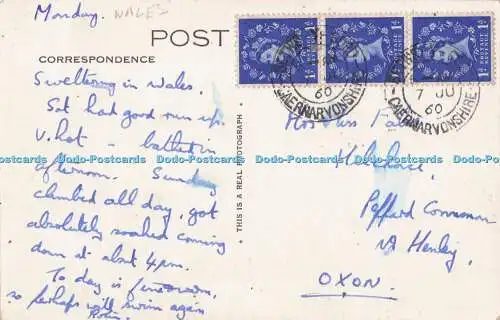 Monday.
WALES
POST
CORRESPONDENCE
Sweltering in Wales.
Sat had good run up.
V. hot – bathed in
afternoon. Sunday
climbed all day, got
absolutely soaked coming
down at abt 4pm.
To day is
so perhaps will swim again
Robin.
THIS IS A REAL PHOTOGRAPH
1D POSTAGE REVENUE 1D
60
CAERNARVONSHIRE
7 JU
60
CAERNARVONSHIRE
Peppard Common
Nr Henley
OXON.
Dodo-Postcards Dodo-Postcards Dodo-Postcards Dodo-Postcards Dodo-Postcards